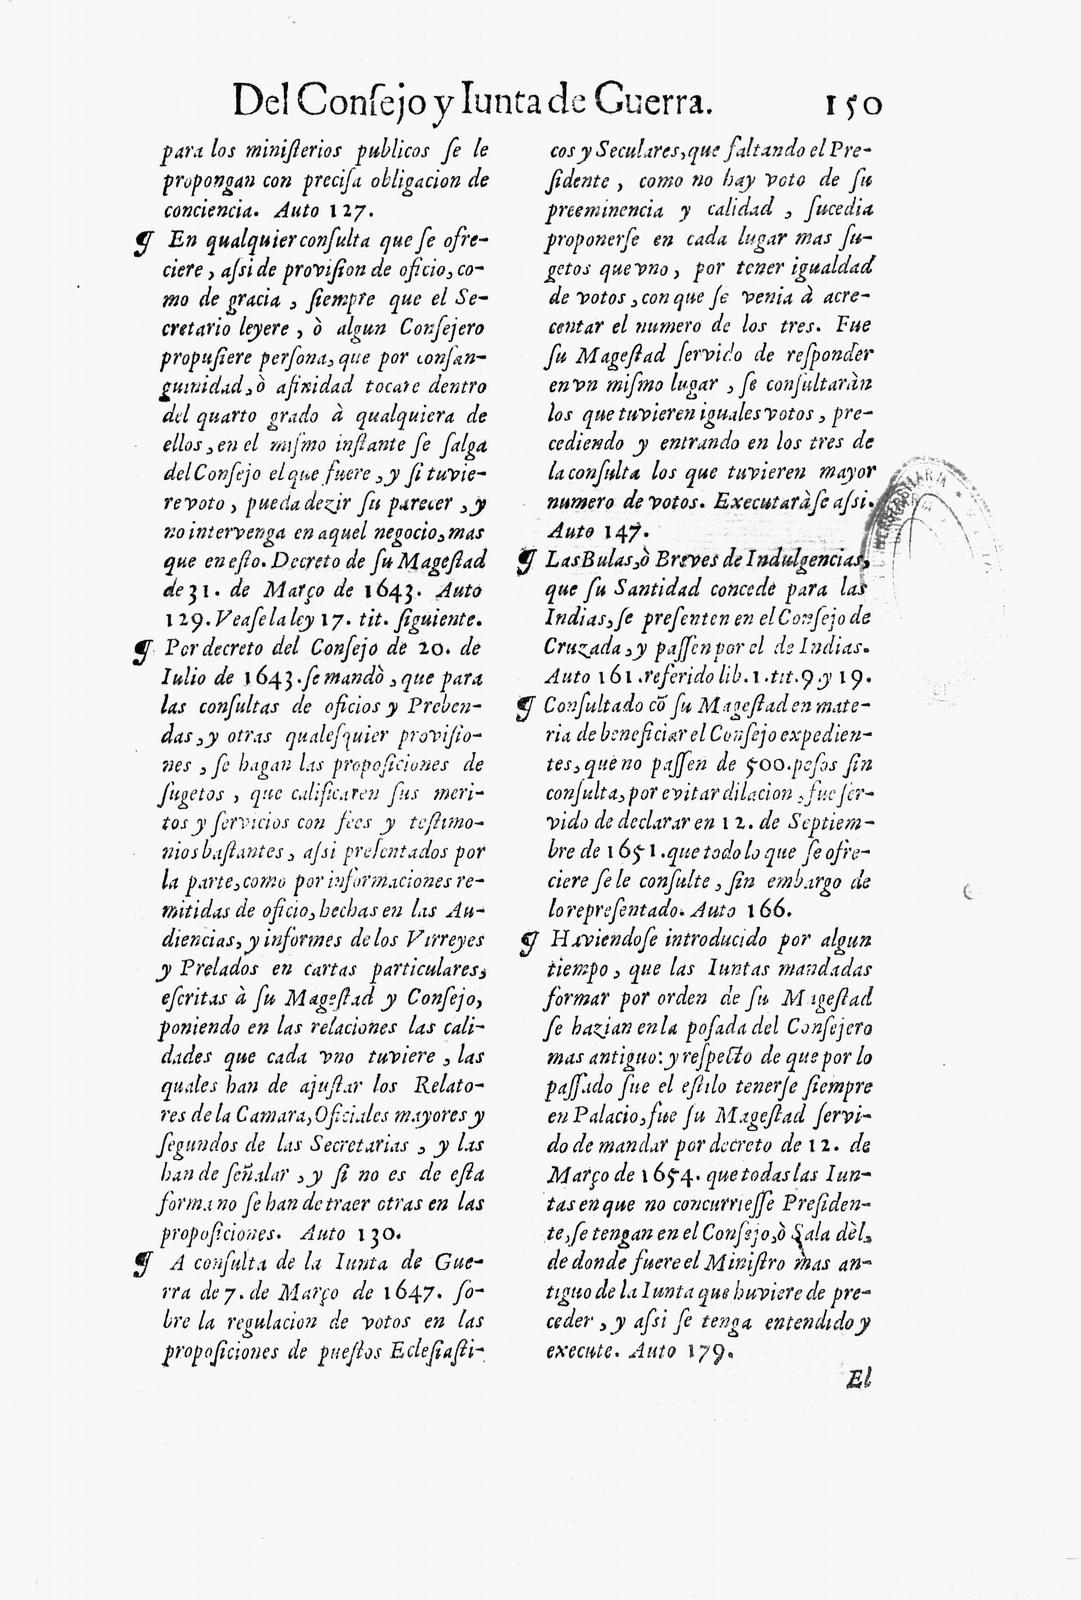 Del Conſejo y Iunta de Guerra. 150
para los miniſterios publicos ſe le
propongan con preciſa obligacion de
conciencia. Auto 127.
¶ En qualquier conſulta que ſe ofre-
ciere, aſsi de proviſion de oficio, co-
mo de gracia, ſiempre que el Se-
cretario leyere, ò algun Conſejero
propuſiere perſona, que por conſan-
guinidad, ò afinidad tocare dentro
del quarto grado à qualquiera de
ellos, en el miſmo inſtante ſe ſalga
del Conſejo el que fuere, y ſi tuvie-
re voto, pueda dezir ſu parecer, y
no intervenga en aquel negocio, mas
que en eſto. Decreto de ſu Mageſtad
de 31. de Março de 1643. Auto
129. Veaſe la ley 17. tit. ſiguiente.
¶ Por decreto del Conſejo de 20. de
Iulio de 1643. ſe mandò, que para
las conſultas de oficios y Preben-
das, y otras qualeſquier proviſio-
nes, ſe hagan las propoſiciones de
ſugetos, que calificaren ſus meri-
tos y ſervicios con fees y teſtimo-
nios baſtantes, aſsi preſentados por
la parte, como por informaciones re-
mitidas de oficio, hechas en las Au-
diencias, y informes de los Virreyes
y Prelados en cartas particulares,
eſcritas à ſu Mageſtad y Conſejo,
poniendo en las relaciones las cali-
dades que cada vno tuviere, las
quales han de ajuſtar los Relato-
res de la Camara, Oficiales mayores y
ſegundos de las Secretarias, y las
han de ſeñalar, y ſi no es de eſta
forma no ſe han de traer otras en las
propoſiciones. Auto 130.
¶ A conſulta de la Iunta de Gue-
rra de 7. de Março de 1647. ſo-
bre la regulacion de votos en las
propoſiciones de pueſtos Ecleſiaſti-
cos y Seculares, que faltando el Pre-
ſidente, como no hay voto de ſu
preeminencia y calidad, ſucedia
proponerſe en cada lugar mas ſu-
getos que vno, por tener igualdad
de votos, con que ſe venia à acre-
centar el numero de los tres. Fue
ſu Mageſtad ſervido de reſponder
en vn miſmo lugar, ſe conſultaràn
los que tuvieren iguales votos, pre-
cediendo y entrando en los tres de
la conſulta los que tuvieren mayor
numero de votos. Executaràſe aſsi.
Auto 147.
¶ Las Bulas, ò Breves de Indulgencias,
que ſu Santidad concede para las
Indias, ſe preſenten en el Conſejo de
Cruzada, y paſſen por el de Indias.
Auto 161. referido lib. 1. tit. 9. y 19.
¶ Conſultado cõ ſu Mageſtad en mate-
ria de beneficiar el Conſejo expedien-
tes, que no paſſen de 500. peſos ſin
conſulta, por evitar dilacion, fue ſer-
vido de declarar en 12. de Septiem-
bre de 1651. que todo lo que ſe ofre-
ciere ſe le conſulte, ſin embargo de
lo repreſentado. Auto 166.
¶ Haviendoſe introducido por algun
tiempo, que las Iuntas mandadas
formar por orden de ſu Mageſtad
ſe hazian en la poſada del Conſejero
mas antiguo: y reſpecto de que por lo
paſſado fue el eſtilo tenerſe ſiempre
en Palacio, fue ſu Mageſtad ſervi-
do de mandar por decreto de 12. de
Março de 1654. que todas las Iun-
tas en que no concurrieſſe Preſiden-
te, ſe tengan en el Conſejo, ò Sala dèl,
de donde fuere el Miniſtro mas an-
tiguo de la Iunta que huviere de pre-
ceder, y aſsi ſe tenga entendido y
execute. Auto 179.
El